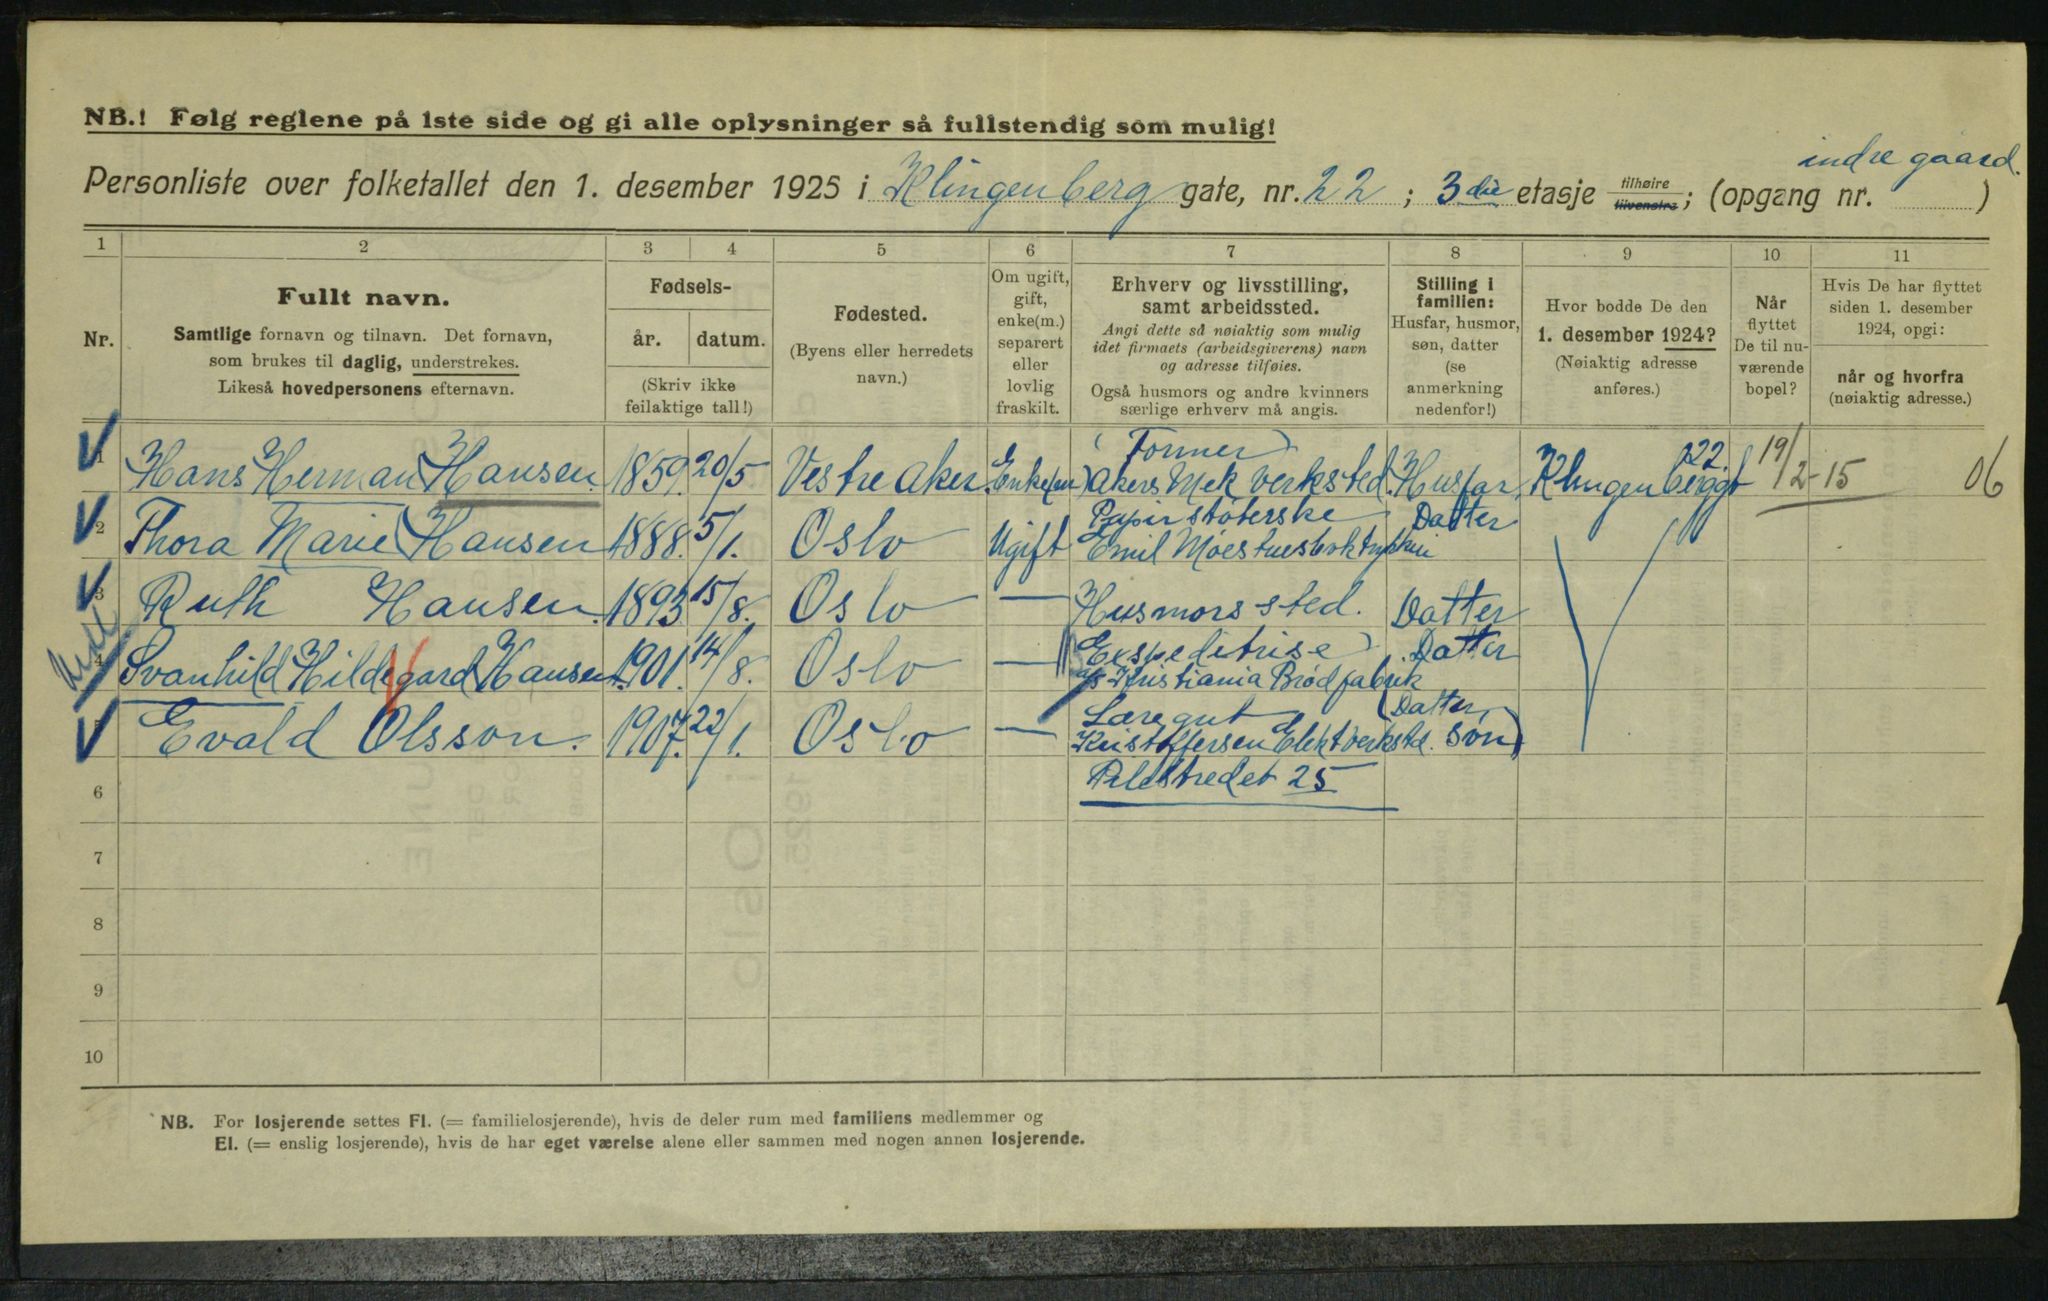 NB.! Følg reglene på 1ste side og gi alle oplysninger så fullstendig som mulig!
indre gaard.
Personliste over folketallet den 1. desember 1925 i Klingenberg gate, nr. 22 ; 3die etasje tilhøire tilvenstre ; (opgang nr. )
1 2 3 4 5 6 7 8 9 10 11
Nr.
Fullt navn.
Samtlige fornavn og tilnavn. Det fornavn,
som brukes til daglig, understrekes.
Likeså hovedpersonens efternavn.
Fødsels-
år. datum.
(Skriv ikke
feilaktige tall!)
Fødested.
(Byens eller herredets
navn.)
Om ugift,
gift,
enke(m.)
separert
eller
lovlig
fraskilt.
Erhverv og livsstilling,
samt arbeidssted.
Angi dette så nøiaktig som mulig
idet firmaets (arbeidsgiverens) navn
og adresse tilføies.
Også husmors og andre kvinners
særlige erhverv må angis.
Stilling i
familien:
Husfar, husmor,
søn, datter
(se
anmerkning
nedenfor!)
Hvor bodde De den
1. desember 1924?
(Nøiaktig adresse
anføres.)
Når
flyttet
De til nu-
værende
bopel?
Hvis De har flyttet
siden 1. desember
1924, opgi:
når og hvorfra
(nøiaktig adresse.)
1 Hans Herman Hansen. 1859. 20/5 Vestre Aker. Enke(m) (Former) Akers Mek verksted. Husfar. Klingenberggt 22. 19/2-15 06
2 Thora Marie Hansen 1888. 5/1. Oslo Ugift Papirstøterske Emil Moestuesboktrykkeri Datter
3 Ruth Hansen. 1893 15/8. Oslo — Husmorssted. Datter
4 Svanhild Hildegard Hansen. 1901. 14/8. Oslo — Ekspeditrise) A/S Kristiania Brødfabrik Datter
5 Evald Olsson. 1907. 22/1. Oslo — Læregut Kristoffersen Elektverksted. (Datter, søn)
6 Pilestredet 25
7
8
9
10
NB. For losjerende settes Fl. (= familielosjerende), hvis de deler rum med familiens medlemmer og
El. (= enslig losjerende), hvis de har eget værelse alene eller sammen med nogen annen losjerende.